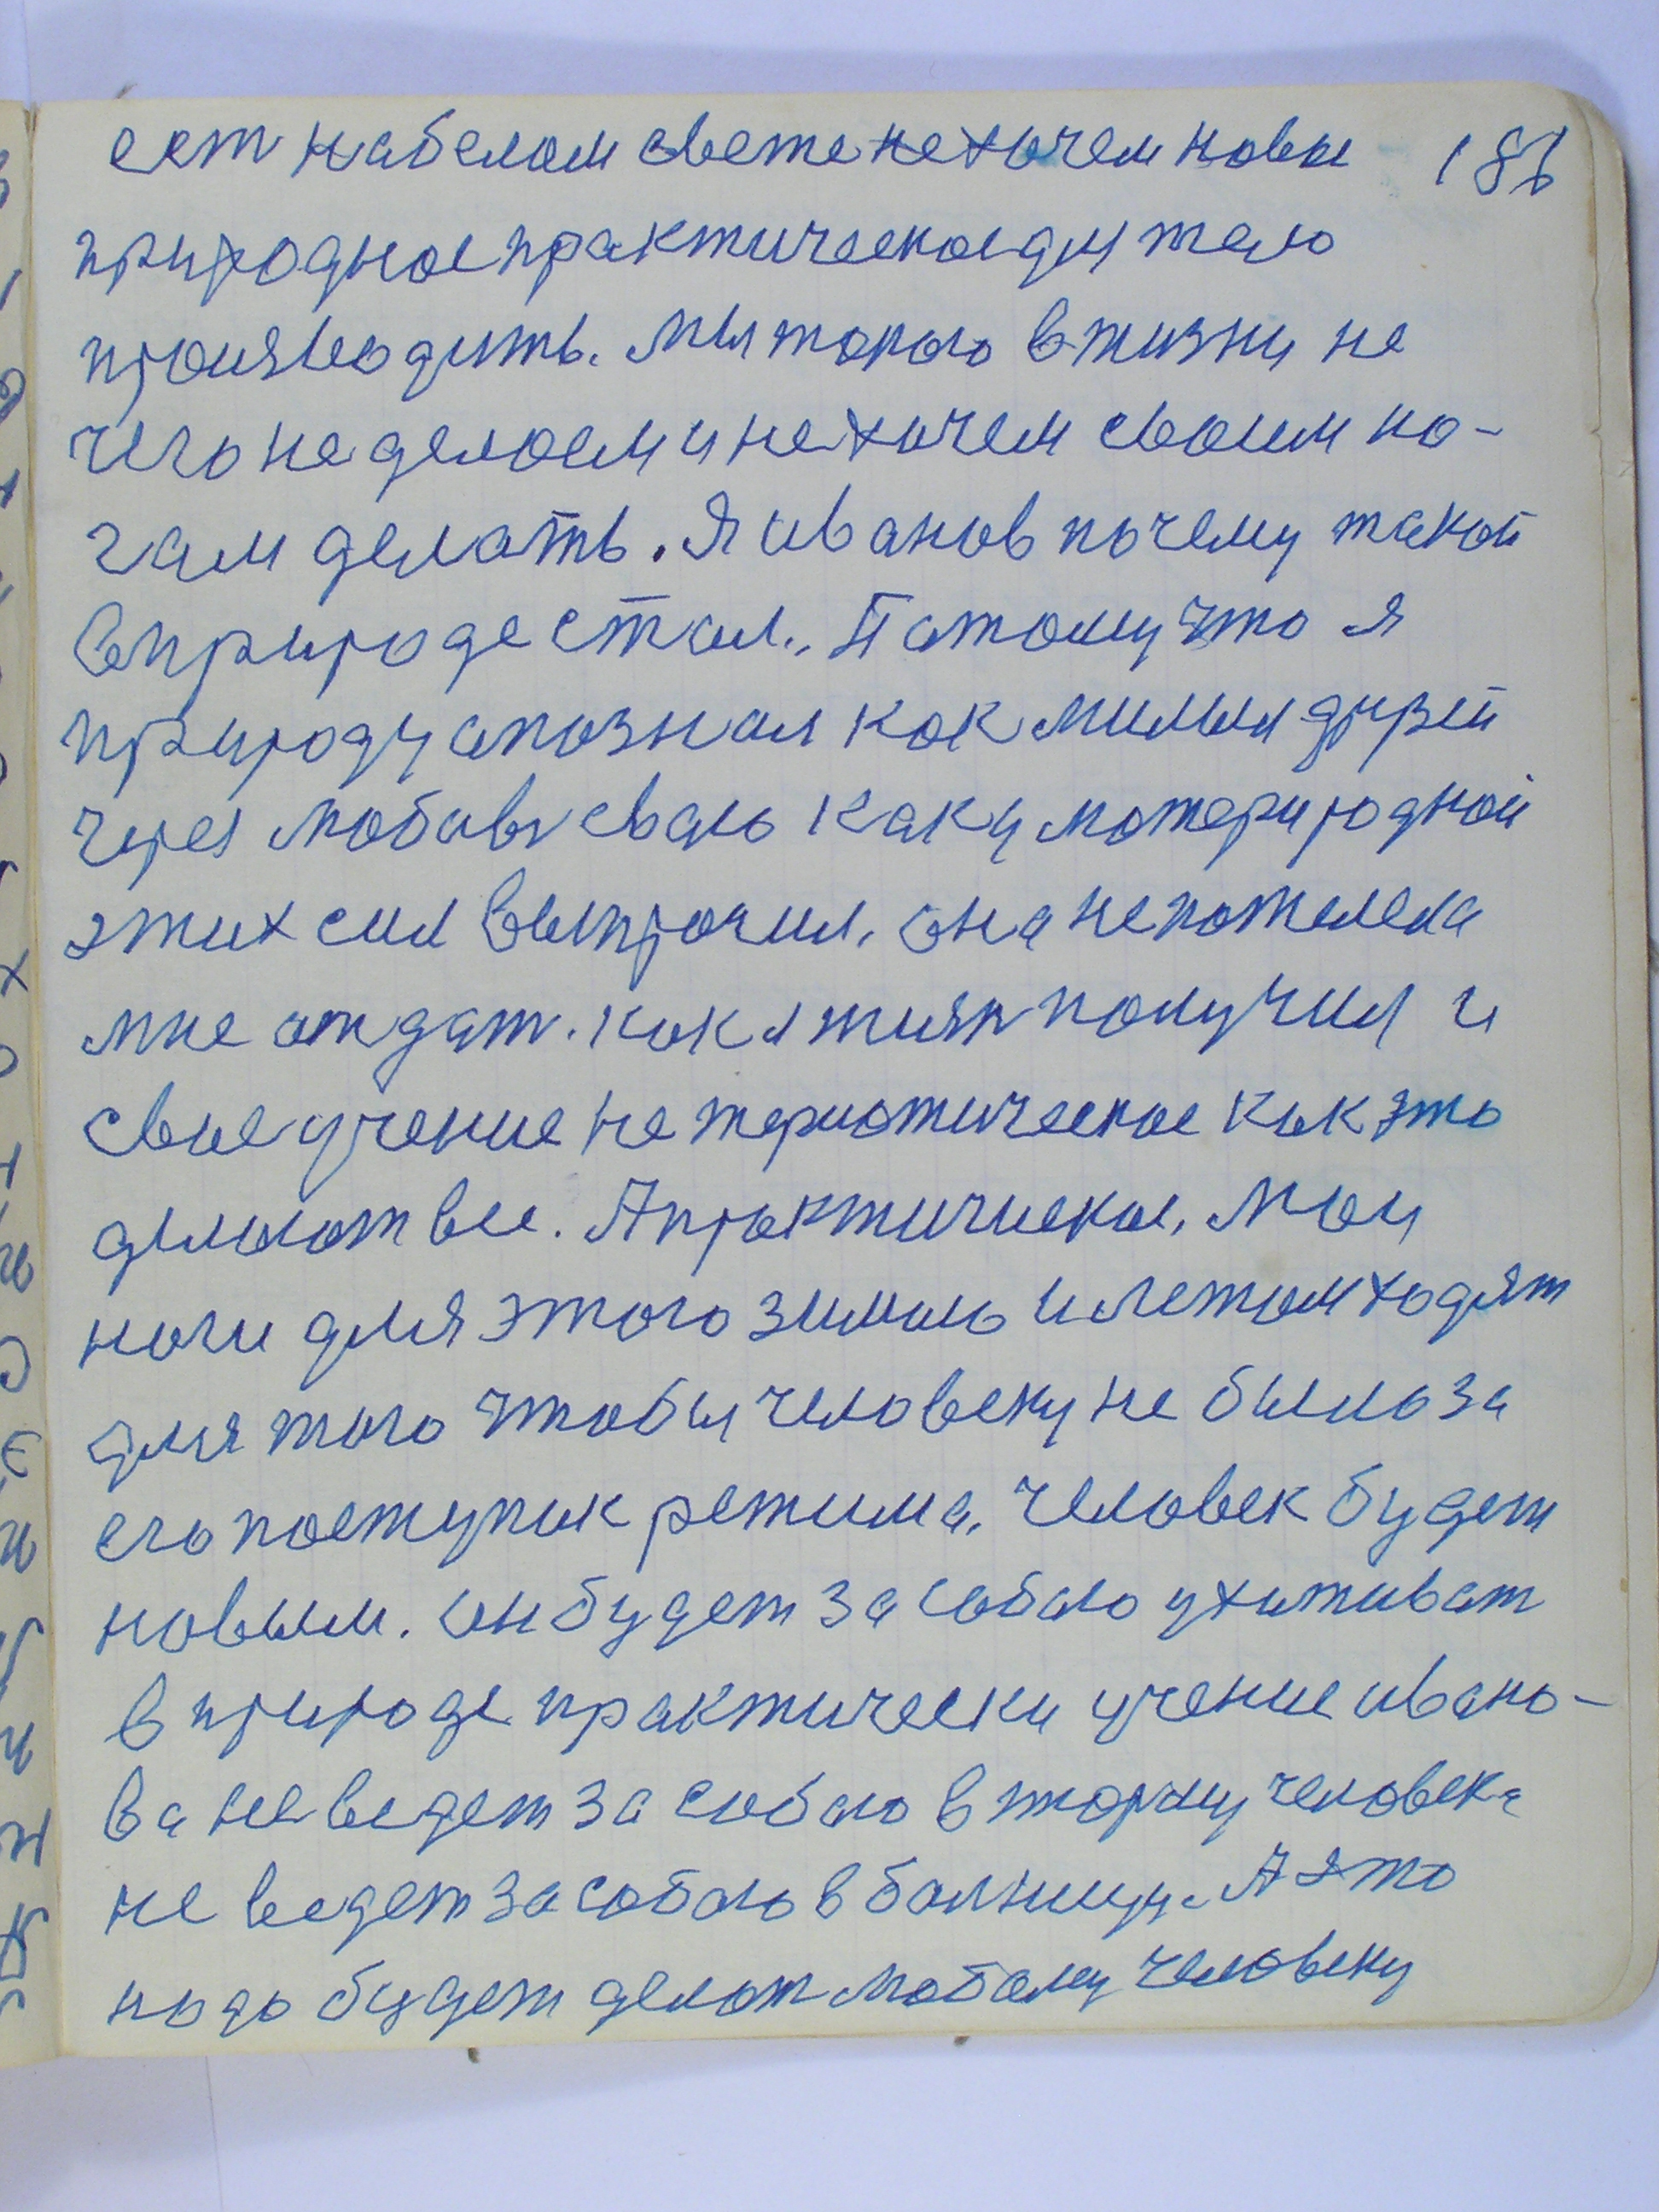 ест на белом свете не хочем новое 186
природное практическое для тело
производить. Мы токого в жизни не
чего не делоем и не хочем своим но-
гам делать. Я иванов почему такой
в природе стал., Патому что я
природу апознал как милым друзей
через любовь сваю как у матери родной
этих сил выпрочил. она не пожелела
мне атдат. как я жизн получил и
свое учение не териотическое как это
делоют все. А проктичиское, Мои
ноги для этого зимою и летом ходят
для того чтобы человеку не было за
его поступак режима. Человек будет
новым. он будет за собаю ухиживат
в природе практически учение ивано-
ва не ведет за собаю в тюрму человека
не ведет за собаю в болницу. А это
надо будет делот любому человеку